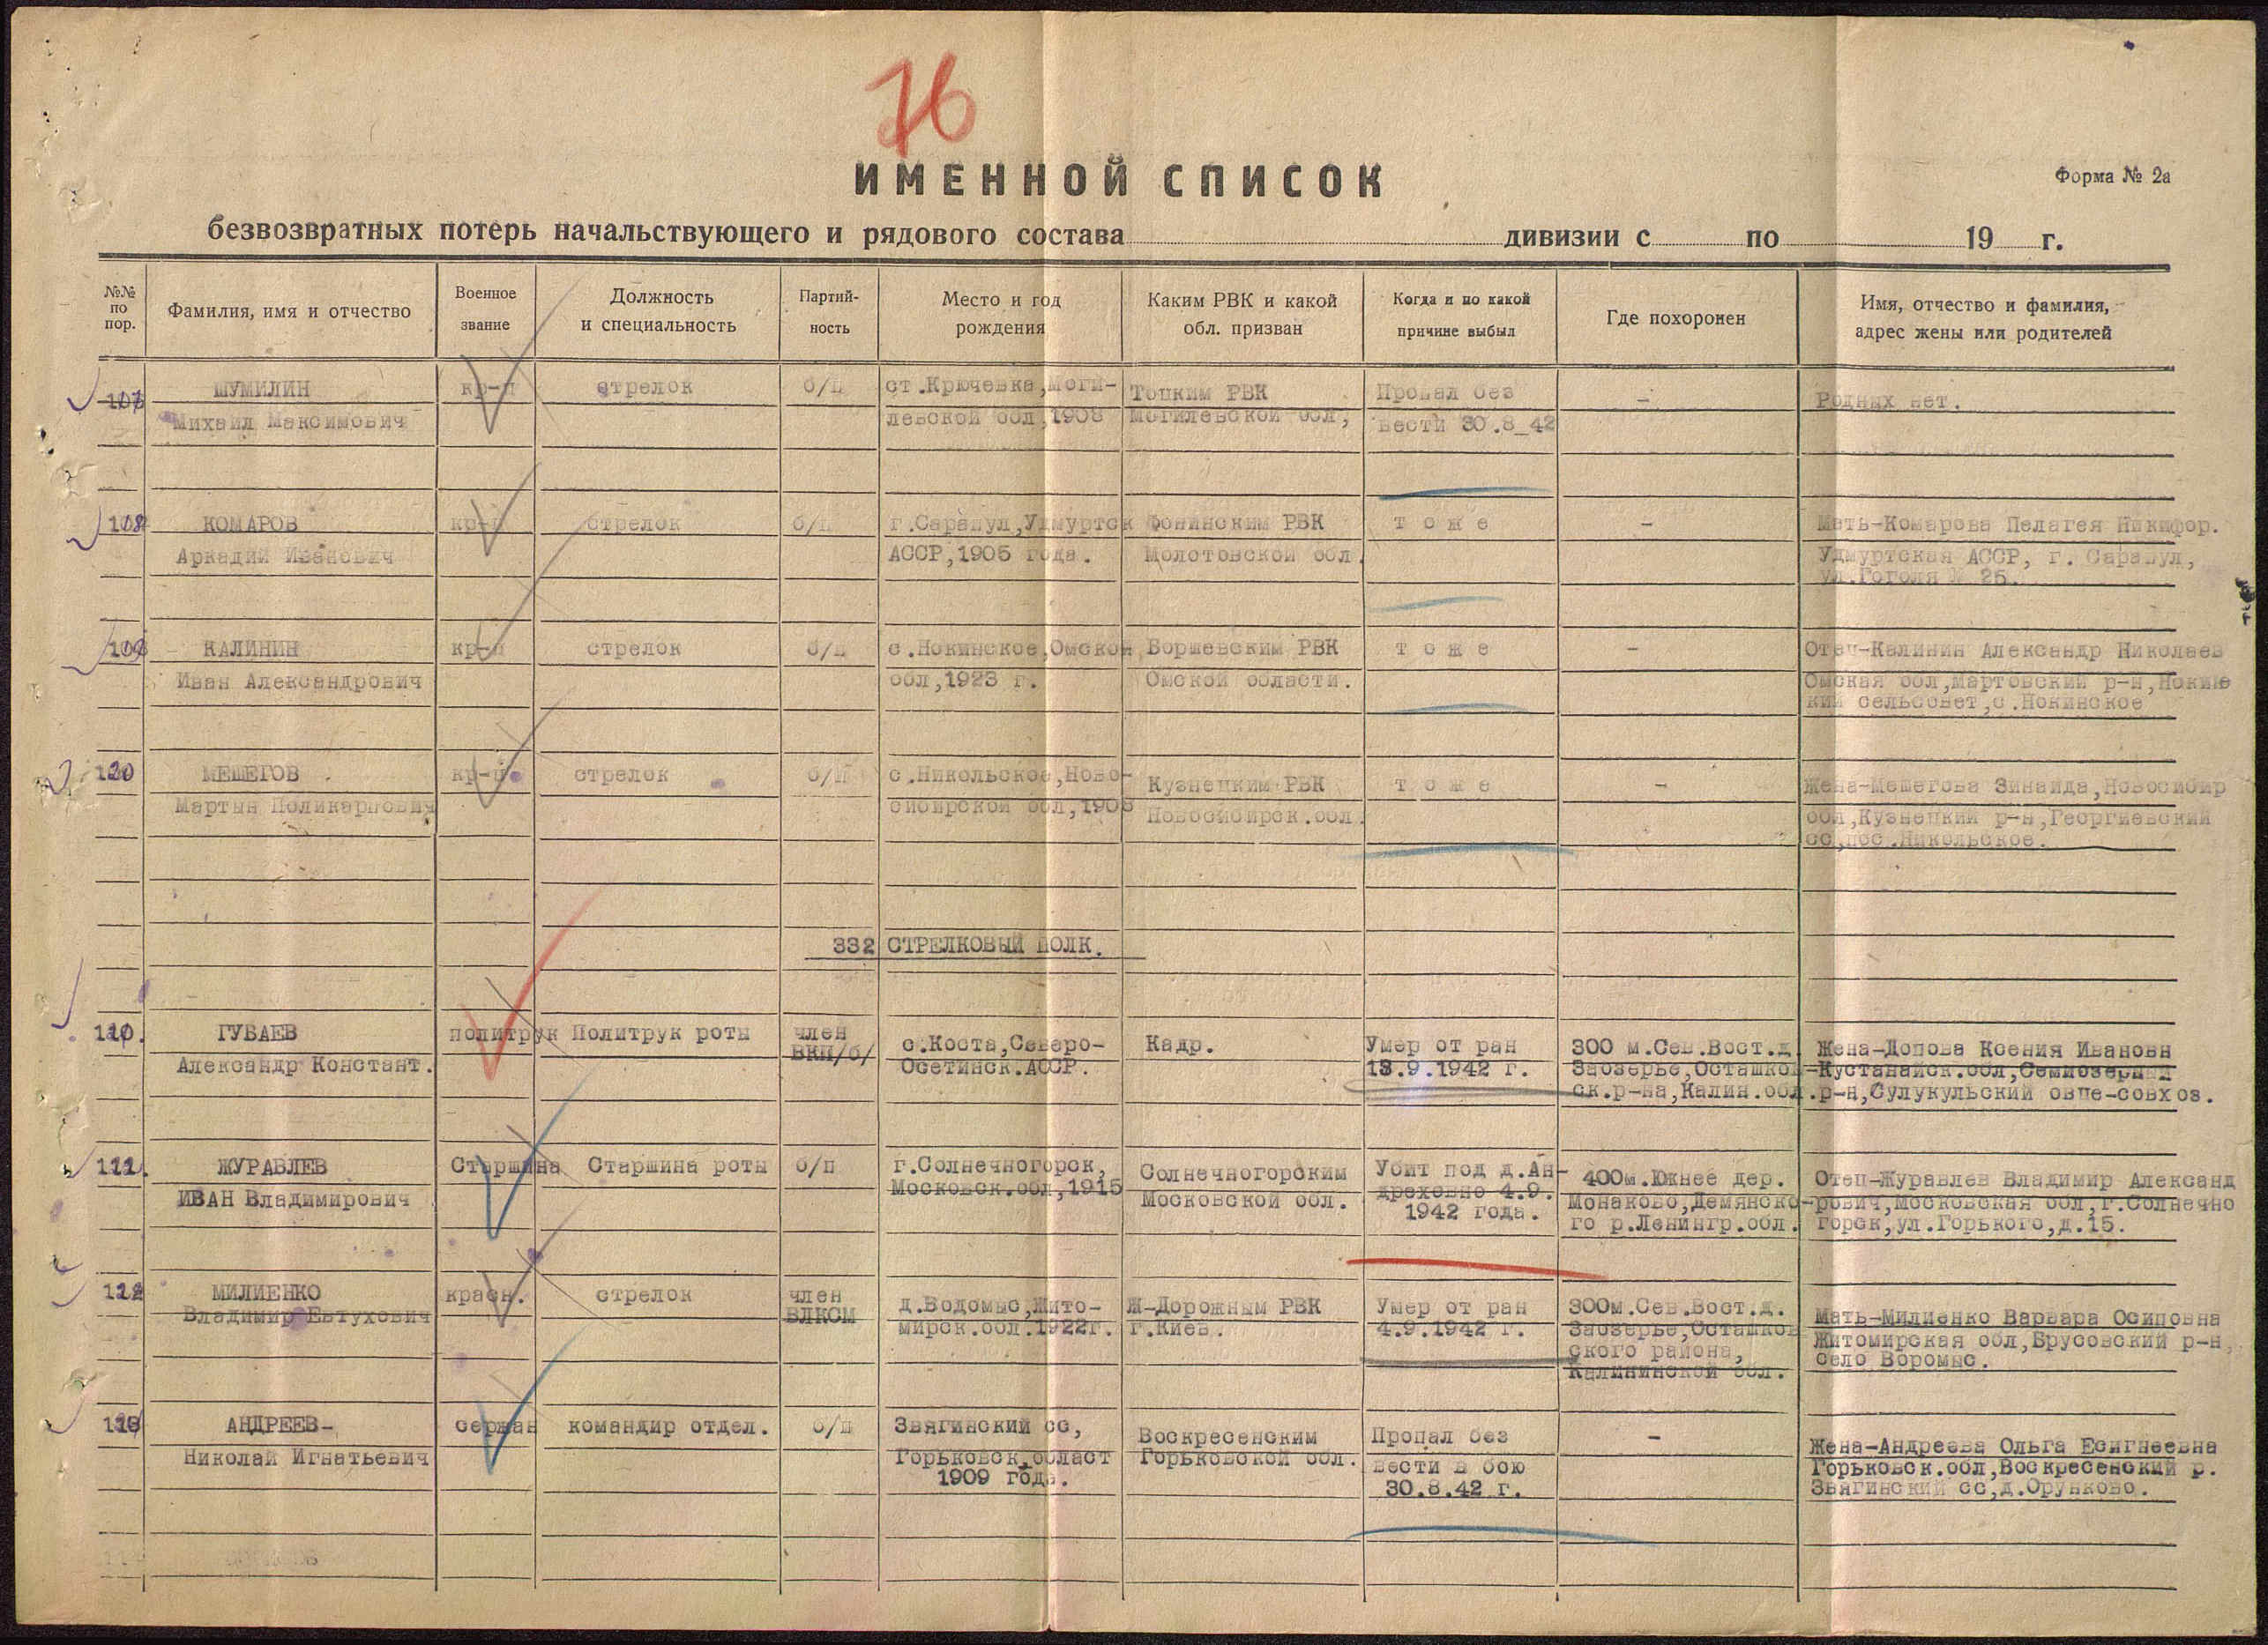 76
ИМЕННОЙ СПИСОК
Форма № 2а
безвозвратных потерь начальствующего и рядового состава дивизии с по 19 г.
№№ по пор.
Фамилия, имя и отчество
Военное звание
Должность и специальность
Партий-ность
Место и год рождения
Каким РВК и какой обл. призван
Когда и по какой причине выбыл
Где похоронен
Имя, отчество и фамилия, адрес жены или родителей
107 ШУМИЛИН кр-ц стрелок б/п ст.Крючевка,Моги- Тоцким РВК Пропал без - Родных нет.
Михаил Максимович левской обл,1908 Могилевской обл, вести 30.8_42
108 КОМАРОВ кр-ц стрелок б/п г.Сарапул,Удмуртск Фонинским РВК т о ж е - Мать-Комарова Пелагея Никифор.
Аркадий Иванович АССР,1905 года. Молотовской обл. Удмуртская АССР, г. Сарапул,
ул.Гоголя № 25.
109 КАЛИНИН кр-ц стрелок б/п с.Нокинское,Омской Воршевским РВК т о ж е - Отец-Калинин Александр Николаев
Иван Александрович обл,1923 г. Омской области. Омская обл,Мартовский р-н,Нокинс
кий сельсовет,с.Нокинское
120 МЕШЕГОВ кр-ц стрелок б/п с.Никольское,Ново- Кузнецким РВК т о ж е - Жена-Мешегова Зинаида,Новосибир
Мартын Поликарпович сибирской обл,1908 Новосибирск.обл. обл,Кузнецкий р-н,Георгиевский
сс,пос.Никольское.
332 СТРЕЛКОВЫЙ ПОЛК.
110. ГУБАЕВ политрук Политрук роты член с.Коста,Северо- Кадр. Умер от ран 300 м.Сев.Вост.д. Жена-Допова Ксения Ивановн
Александр Констант. ВКП/б/ Осетинск.АССР. 13.9.1942 г. Заозерье,Осташков-Кустанайск.обл,Семиозерный
ск.р-на,Калин.обл.р-н,Сулукульский овце-совхоз.
111. ЖУРАВЛЕВ Старшина Старшина роты б/п г.Солнечногорск, Солнечногорским Убит под д.Ан- 400м.Южнее дер. Отец-Журавлев Владимир Александ
ИВАН Владимирович Московск.обл,1915 Московской обл. дреховно 4.9. Монаково,Демянско-рович,Московская обл,г.Солнечно
1942 года. го р.Ленингр.обл. горск,ул.Горького,д.15.
112 МИЛИЕНКО красн. стрелок член д.Водомыс,Жито- Ж-Дорожным РВК Умер от ран 300м.Сев.Вост.д. Мать-Милиенко Варвара Осиповна
Владимир Евтухович ВЛКСМ мирск.обл.1922г. г.Киев. 4.9.1942 г. Заозерье,Осташков Житомирская обл,Брусовский р-н,
ского района, село Воромыс.
Калининской обл.
113 АНДРЕЕВ- сержан командир отдел. б/п Звягинский сс, Воскресенским Пропал без - Жена-Андреева Ольга Есигнеевна
Николай Игнатьевич Горьковск.област Горьковской обл. вести в бою Горьковск.обл,Воскресенский р.
1909 года. 30.8.42 г. Звягинский сс,д.Орунково.